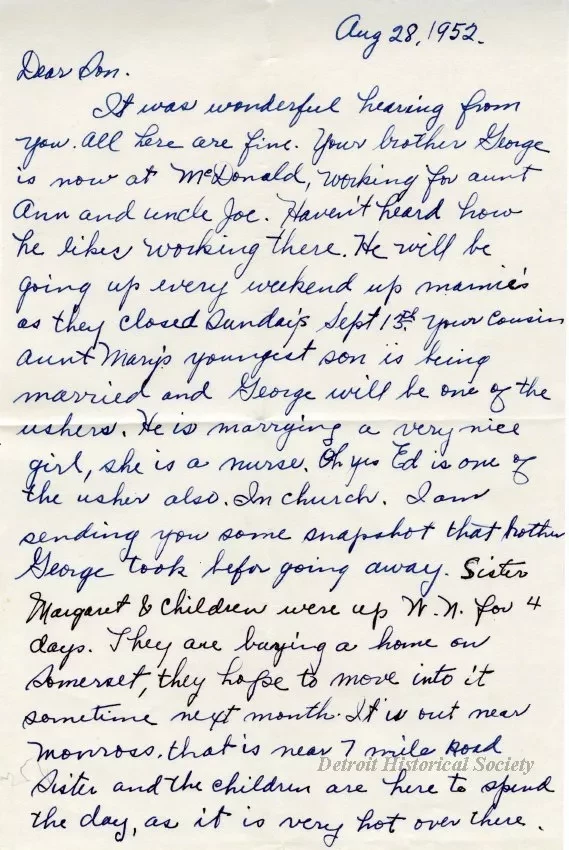 Aug 28, 1952.
Dear Son.
It was wonderful hearing from
you. All here are fine. Your brother George
is now at McDonald, working for aunt
Ann and uncle Joe. Haven't heard how
he likes working there. He will be
going up every weekend up mamie's
as they closed Sunday's Sept 13th your cousin
aunt Mary's youngest son is being
married and George will be one of the
ushers. He is marrying a very nice
girl, she is a nurse. Oh yes Ed is one of
the usher also. In church. I am
sending you some snapshot that brother
George took befor going away. Sister
Margaret & Children were up W. N. for 4
days. They are buying a home on
Somerset, they hope to move into it
sometime next month. It is out near
Monross. that is near 7 mile Road
Detroit Historical Society
Sister and the children are here to spend
the day, as it is very hot over there.